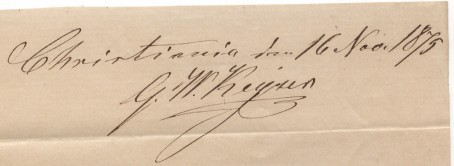 Christiania den 16 Nov. 1875
G. W. Keyser